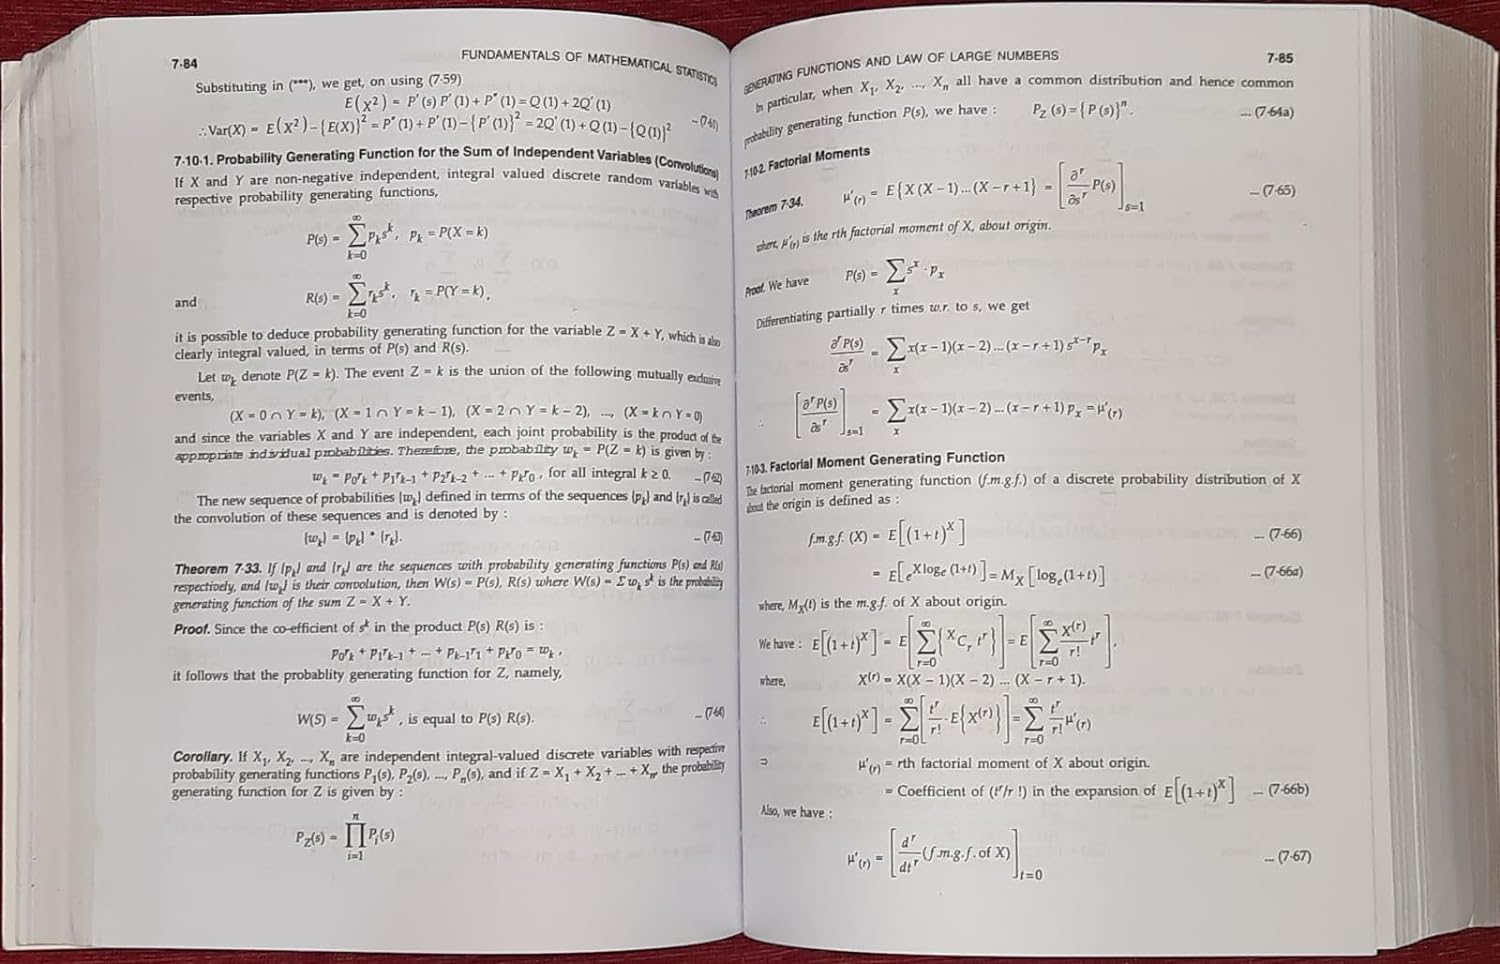 7·84
FUNDAMENTALS OF MATHEMATICAL STATISTICS
Substituting in (***), we get, on using (7·59)
E(X²) = P′(s) P′(1) + P″(1) = Q(1) + 2Q′(1)
∴ Var(X) = E(X²) – {E(X)}² = P″(1) + P′(1) – {P′(1)}² = 2Q′(1) + Q(1) – {Q(1)}² ...(7·61)
7·10·1. Probability Generating Function for the Sum of Independent Variables (Convolutions)
If X and Y are non-negative independent, integral valued discrete random variables with
respective probability generating functions,
P(s) = ∑_{k=0}^{∞} p_k s^k, p_k = P(X = k)
and R(s) = ∑_{k=0}^{∞} r_k s^k, r_k = P(Y = k),
it is possible to deduce probability generating function for the variable Z = X + Y, which is also
clearly integral valued, in terms of P(s) and R(s).
Let w_k denote P(Z = k). The event Z = k is the union of the following mutually exclusive
events,
(X = 0 ∩ Y = k), (X = 1 ∩ Y = k – 1), (X = 2 ∩ Y = k – 2), ..., (X = k ∩ Y = 0)
and since the variables X and Y are independent, each joint probability is the product of the
appropriate individual probabilities. Therefore, the probability w_k = P(Z = k) is given by :
w_k = p_0 r_k + p_1 r_{k–1} + p_2 r_{k–2} + ... + p_k r_0 , for all integral k ≥ 0. ...(7·62)
The new sequence of probabilities {w_k} defined in terms of the sequences {p_k} and {r_k} is called
the convolution of these sequences and is denoted by :
{w_k} = {p_k} * {r_k}. ...(7·63)
Theorem 7·33. If {p_k} and {r_k} are the sequences with probability generating functions P(s) and R(s)
respectively, and {w_k} is their convolution, then W(s) = P(s), R(s) where W(s) = Σ w_k s^k is the probability
generating function of the sum Z = X + Y.
Proof. Since the co-efficient of s^k in the product P(s) R(s) is :
p_0 r_k + p_1 r_{k–1} + ... + p_{k–1} r_1 + p_k r_0 = w_k ,
it follows that the probablity generating function for Z, namely,
W(S) = ∑_{k=0}^{∞} w_k s^k , is equal to P(s) R(s). ...(7·64)
Corollary. If X_1, X_2, ..., X_n are independent integral-valued discrete variables with respective
probability generating functions P_1(s), P_2(s), ..., P_n(s), and if Z = X_1 + X_2 + ... + X_n, the probability
generating function for Z is given by :
P_Z(s) = ∏_{i=1}^{n} P_i(s)
GENERATING FUNCTIONS AND LAW OF LARGE NUMBERS
7·85
In particular, when X_1, X_2, ..., X_n all have a common distribution and hence common
probability generating function P(s), we have : P_Z (s) = {P (s)}^n. ... (7·64a)
7·10·2. Factorial Moments
Theorem 7·34. μ′_(r) = E{X (X – 1) ... (X – r + 1} = [∂^r/∂s^r P(s)]_{s=1} ... (7·65)
where, μ′_(r) is the rth factorial moment of X, about origin.
Proof. We have P(s) = ∑_x s^x · p_x
Differentiating partially r times w.r. to s, we get
∂^r P(s)/∂s^r = ∑_x x(x – 1)(x – 2) ... (x – r + 1) s^{x–r} p_x
∴ [∂^r P(s)/∂s^r]_{s=1} = ∑_x x(x – 1)(x – 2) ... (x – r + 1) p_x = μ′_(r)
7·10·3. Factorial Moment Generating Function
The factorial moment generating function (f.m.g.f.) of a discrete probability distribution of X
about the origin is defined as :
f.m.g.f. (X) = E[(1 + t)^X] ... (7·66)
= E[e^{X log_e (1+t)}] = M_X [log_e(1 + t)] ... (7·66a)
where, M_X(t) is the m.g.f. of X about origin.
We have : E[(1 + t)^X] = E[∑_{r=0}^{∞} {^X C_r t^r}] = E[∑_{r=0}^{∞} X^{(r)}/r! t^r],
where, X^{(r)} = X(X – 1)(X – 2) ... (X – r + 1).
∴ E[(1 + t)^X] = ∑_{r=0}^{∞} [t^r/r! · E{X^{(r)}}] = ∑_{r=0}^{∞} t^r/r! μ′_(r)
⇒ μ′_(r) = rth factorial moment of X about origin.
= Coefficient of (t^r/r !) in the expansion of E[(1 + t)^X] ... (7·66b)
Also, we have :
μ′_(r) = [d^r/dt^r (f.m.g.f. of X)]_{t=0} ... (7·67)